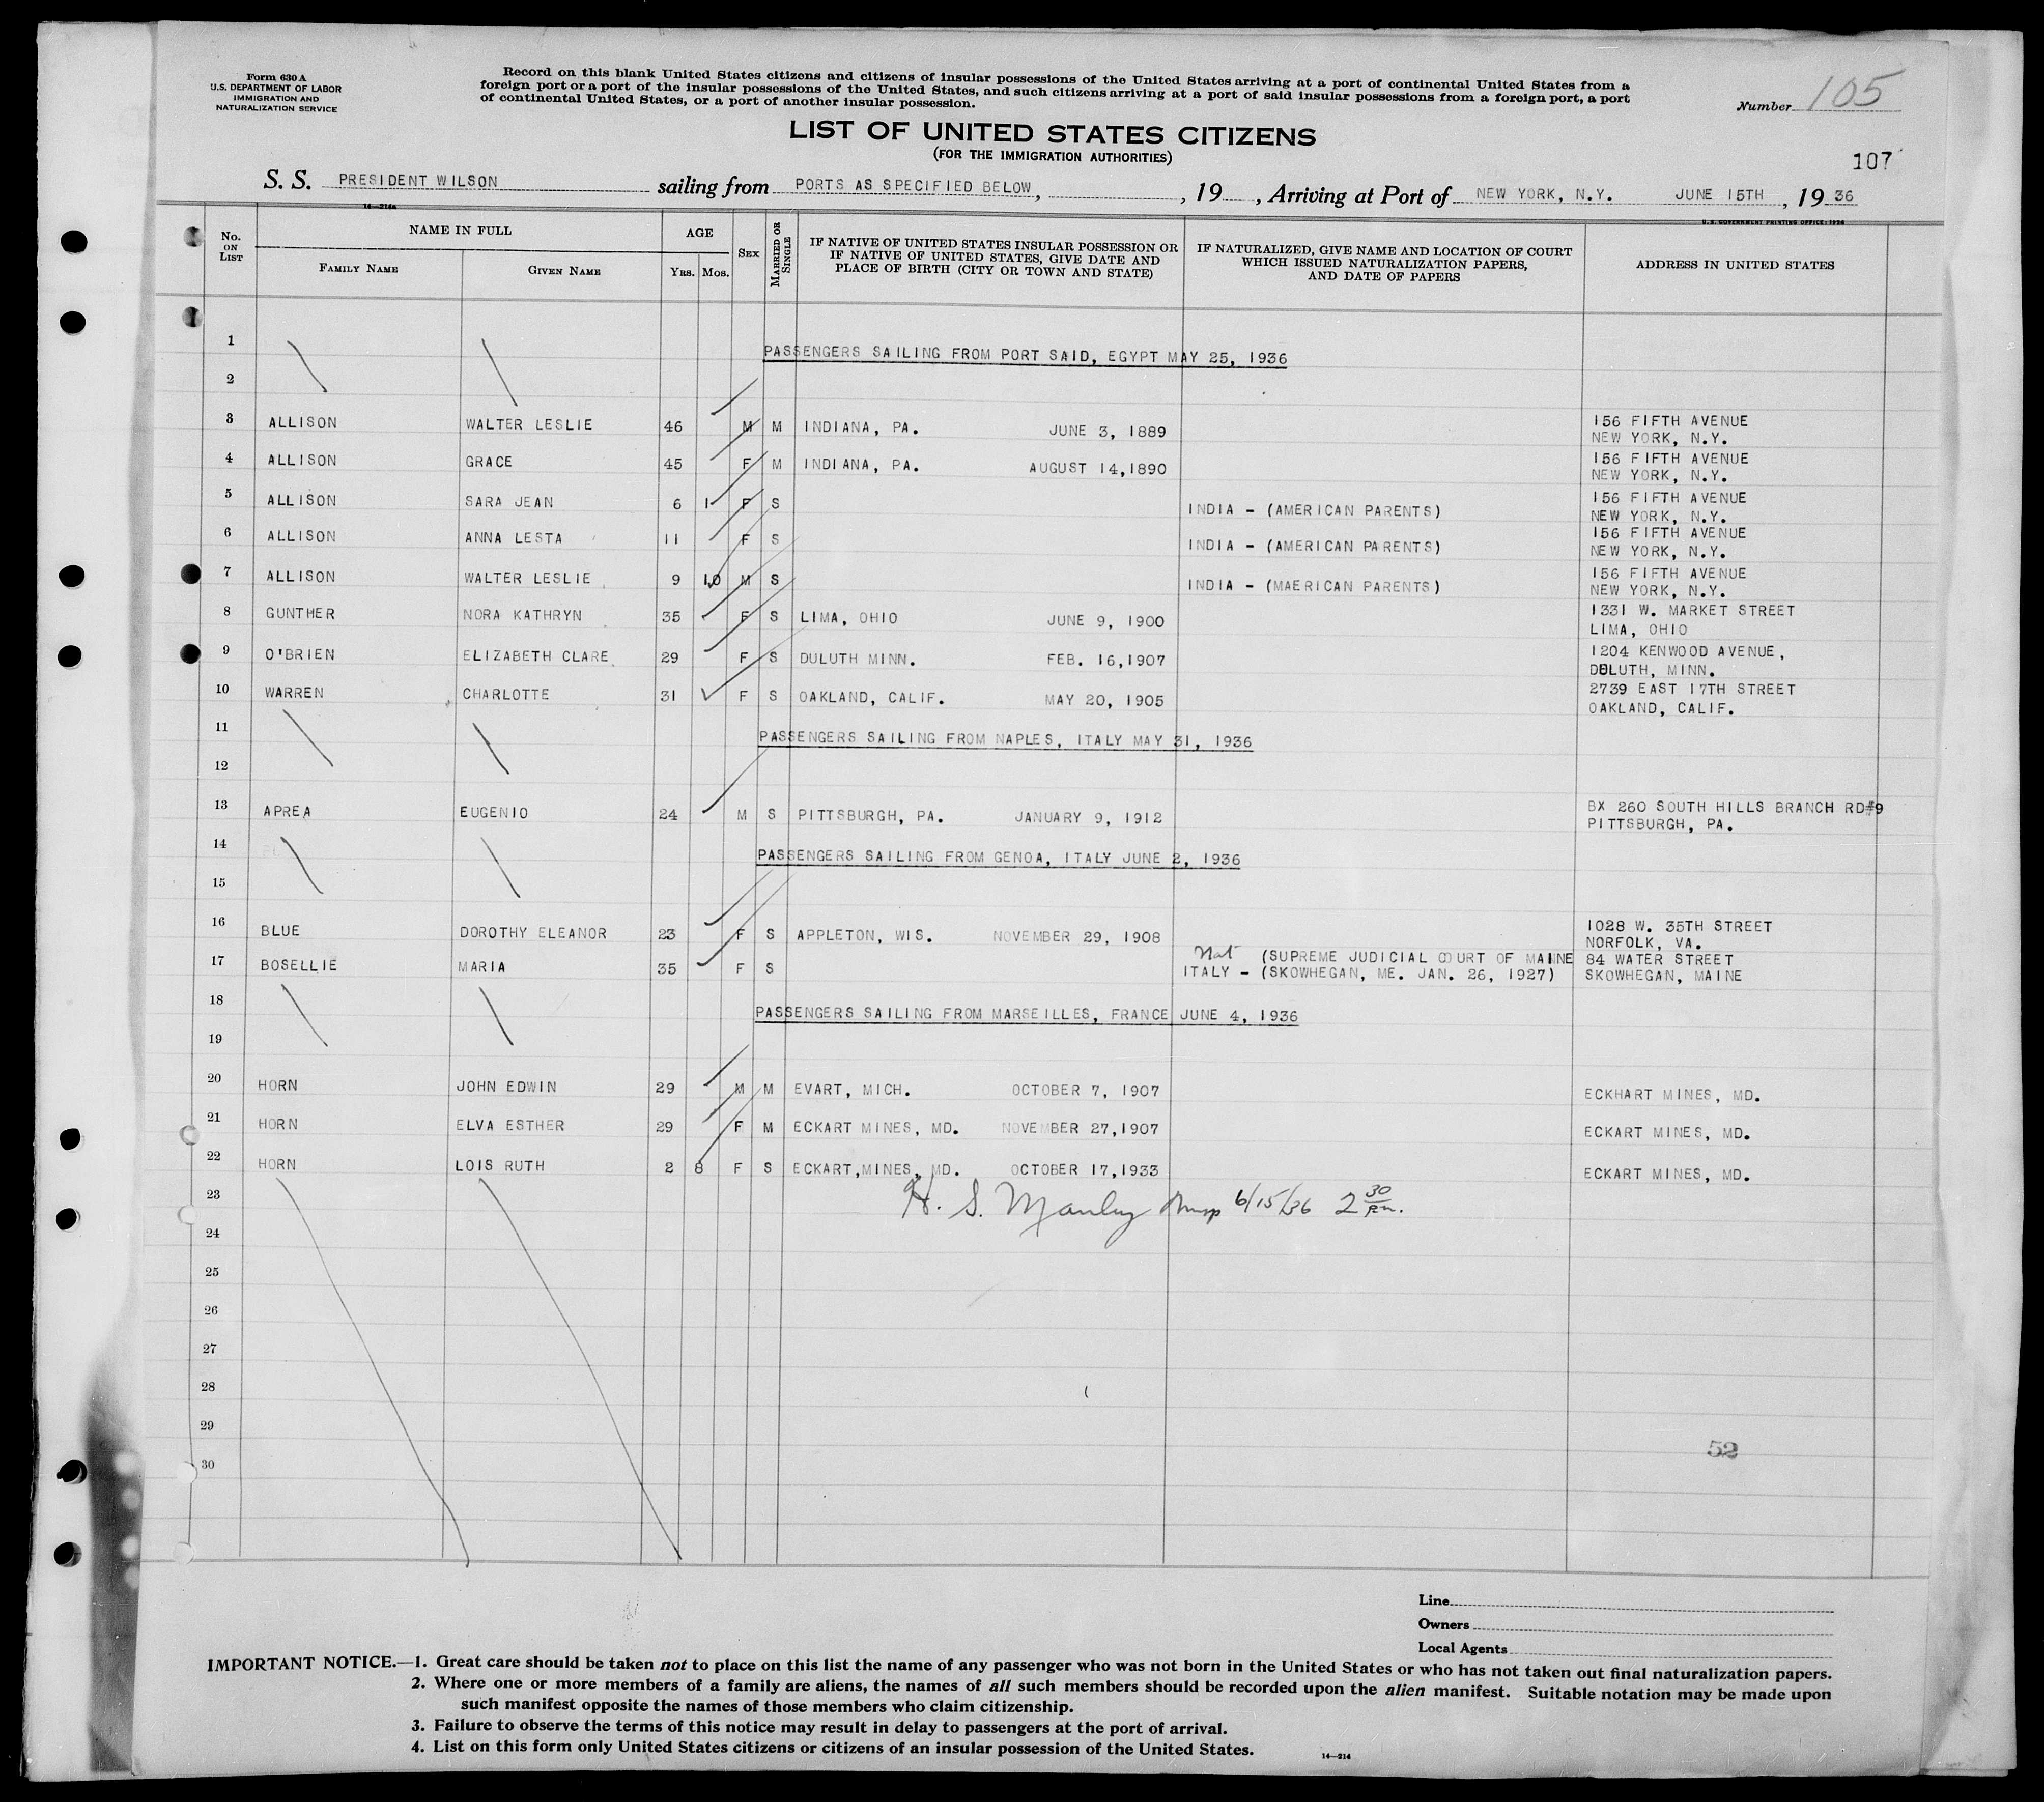 Form 630 A
U.S. DEPARTMENT OF LABOR
IMMIGRATION AND
NATURALIZATION SERVICE
Record on this blank United States citizens and citizens of insular possessions of the United States arriving at a port of continental United States from a
foreign port or a port of the insular possessions of the United States, and such citizens arriving at a port of said insular possessions from a foreign port, a port
of continental United States, or a port of another insular possession.
Number 105
LIST OF UNITED STATES CITIZENS
(FOR THE IMMIGRATION AUTHORITIES)
107
S. S. PRESIDENT WILSON sailing from PORTS AS SPECIFIED BELOW, , 19 , Arriving at Port of NEW YORK, N.Y. JUNE 15TH , 19 36
14—214a
U. S. GOVERNMENT PRINTING OFFICE: 1934
No. ON LIST
NAME IN FULL
FAMILY NAME GIVEN NAME
AGE
YRS. MOS.
SEX
MARRIED OR SINGLE
IF NATIVE OF UNITED STATES INSULAR POSSESSION OR
IF NATIVE OF UNITED STATES, GIVE DATE AND
PLACE OF BIRTH (CITY OR TOWN AND STATE)
IF NATURALIZED, GIVE NAME AND LOCATION OF COURT
WHICH ISSUED NATURALIZATION PAPERS,
AND DATE OF PAPERS
ADDRESS IN UNITED STATES
1 PASSENGERS SAILING FROM PORT SAID, EGYPT MAY 25, 1936
2
3 ALLISON WALTER LESLIE 46 M M INDIANA, PA. JUNE 3, 1889 156 FIFTH AVENUE
NEW YORK, N.Y.
4 ALLISON GRACE 45 F M INDIANA, PA. AUGUST 14,1890 156 FIFTH AVENUE
NEW YORK, N.Y.
5 ALLISON SARA JEAN 6 1 F S INDIA - (AMERICAN PARENTS) 156 FIFTH AVENUE
NEW YORK, N.Y.
6 ALLISON ANNA LESTA 11 F S INDIA - (AMERICAN PARENTS) 156 FIFTH AVENUE
NEW YORK, N.Y.
7 ALLISON WALTER LESLIE 9 10 M S INDIA - (MAERICAN PARENTS) 156 FIFTH AVENUE
NEW YORK, N.Y.
8 GUNTHER NORA KATHRYN 35 F S LIMA, OHIO JUNE 9, 1900 1331 W. MARKET STREET
LIMA, OHIO
9 O'BRIEN ELIZABETH CLARE 29 F S DULUTH MINN. FEB. 16,1907 1204 KENWOOD AVENUE,
DULUTH, MINN.
10 WARREN CHARLOTTE 31 F S OAKLAND, CALIF. MAY 20, 1905 2739 EAST 17TH STREET
OAKLAND, CALIF.
11 PASSENGERS SAILING FROM NAPLES, ITALY MAY 31, 1936
12
13 APREA EUGENIO 24 M S PITTSBURGH, PA. JANUARY 9, 1912 BX 260 SOUTH HILLS BRANCH RD#9
PITTSBURGH, PA.
14 PASSENGERS SAILING FROM GENOA, ITALY JUNE 2, 1936
15
16 BLUE DOROTHY ELEANOR 23 F S APPLETON, WIS. NOVEMBER 29, 1908 1028 W. 35TH STREET
NORFOLK, VA.
17 BOSELLIE MARIA 35 F S Nat (SUPREME JUDICIAL COURT OF MAINE 84 WATER STREET
ITALY - (SKOWHEGAN, ME. JAN. 26, 1927) SKOWHEGAN, MAINE
18 PASSENGERS SAILING FROM MARSEILLES, FRANCE JUNE 4, 1936
19
20 HORN JOHN EDWIN 29 M M EVART, MICH. OCTOBER 7, 1907 ECKHART MINES, MD.
21 HORN ELVA ESTHER 29 F M ECKART MINES, MD. NOVEMBER 27,1907 ECKART MINES, MD.
22 HORN LOIS RUTH 2 8 F S ECKART,MINES, MD. OCTOBER 17,1933 ECKART MINES, MD.
23 H. S. Manley 6/15/36 2 30 P.m.
24
25
26
27
28
29
52
30
Line
Owners
Local Agents
IMPORTANT NOTICE.—1. Great care should be taken not to place on this list the name of any passenger who was not born in the United States or who has not taken out final naturalization papers.
2. Where one or more members of a family are aliens, the names of all such members should be recorded upon the alien manifest. Suitable notation may be made upon
such manifest opposite the names of those members who claim citizenship.
3. Failure to observe the terms of this notice may result in delay to passengers at the port of arrival.
4. List on this form only United States citizens or citizens of an insular possession of the United States.
14—214